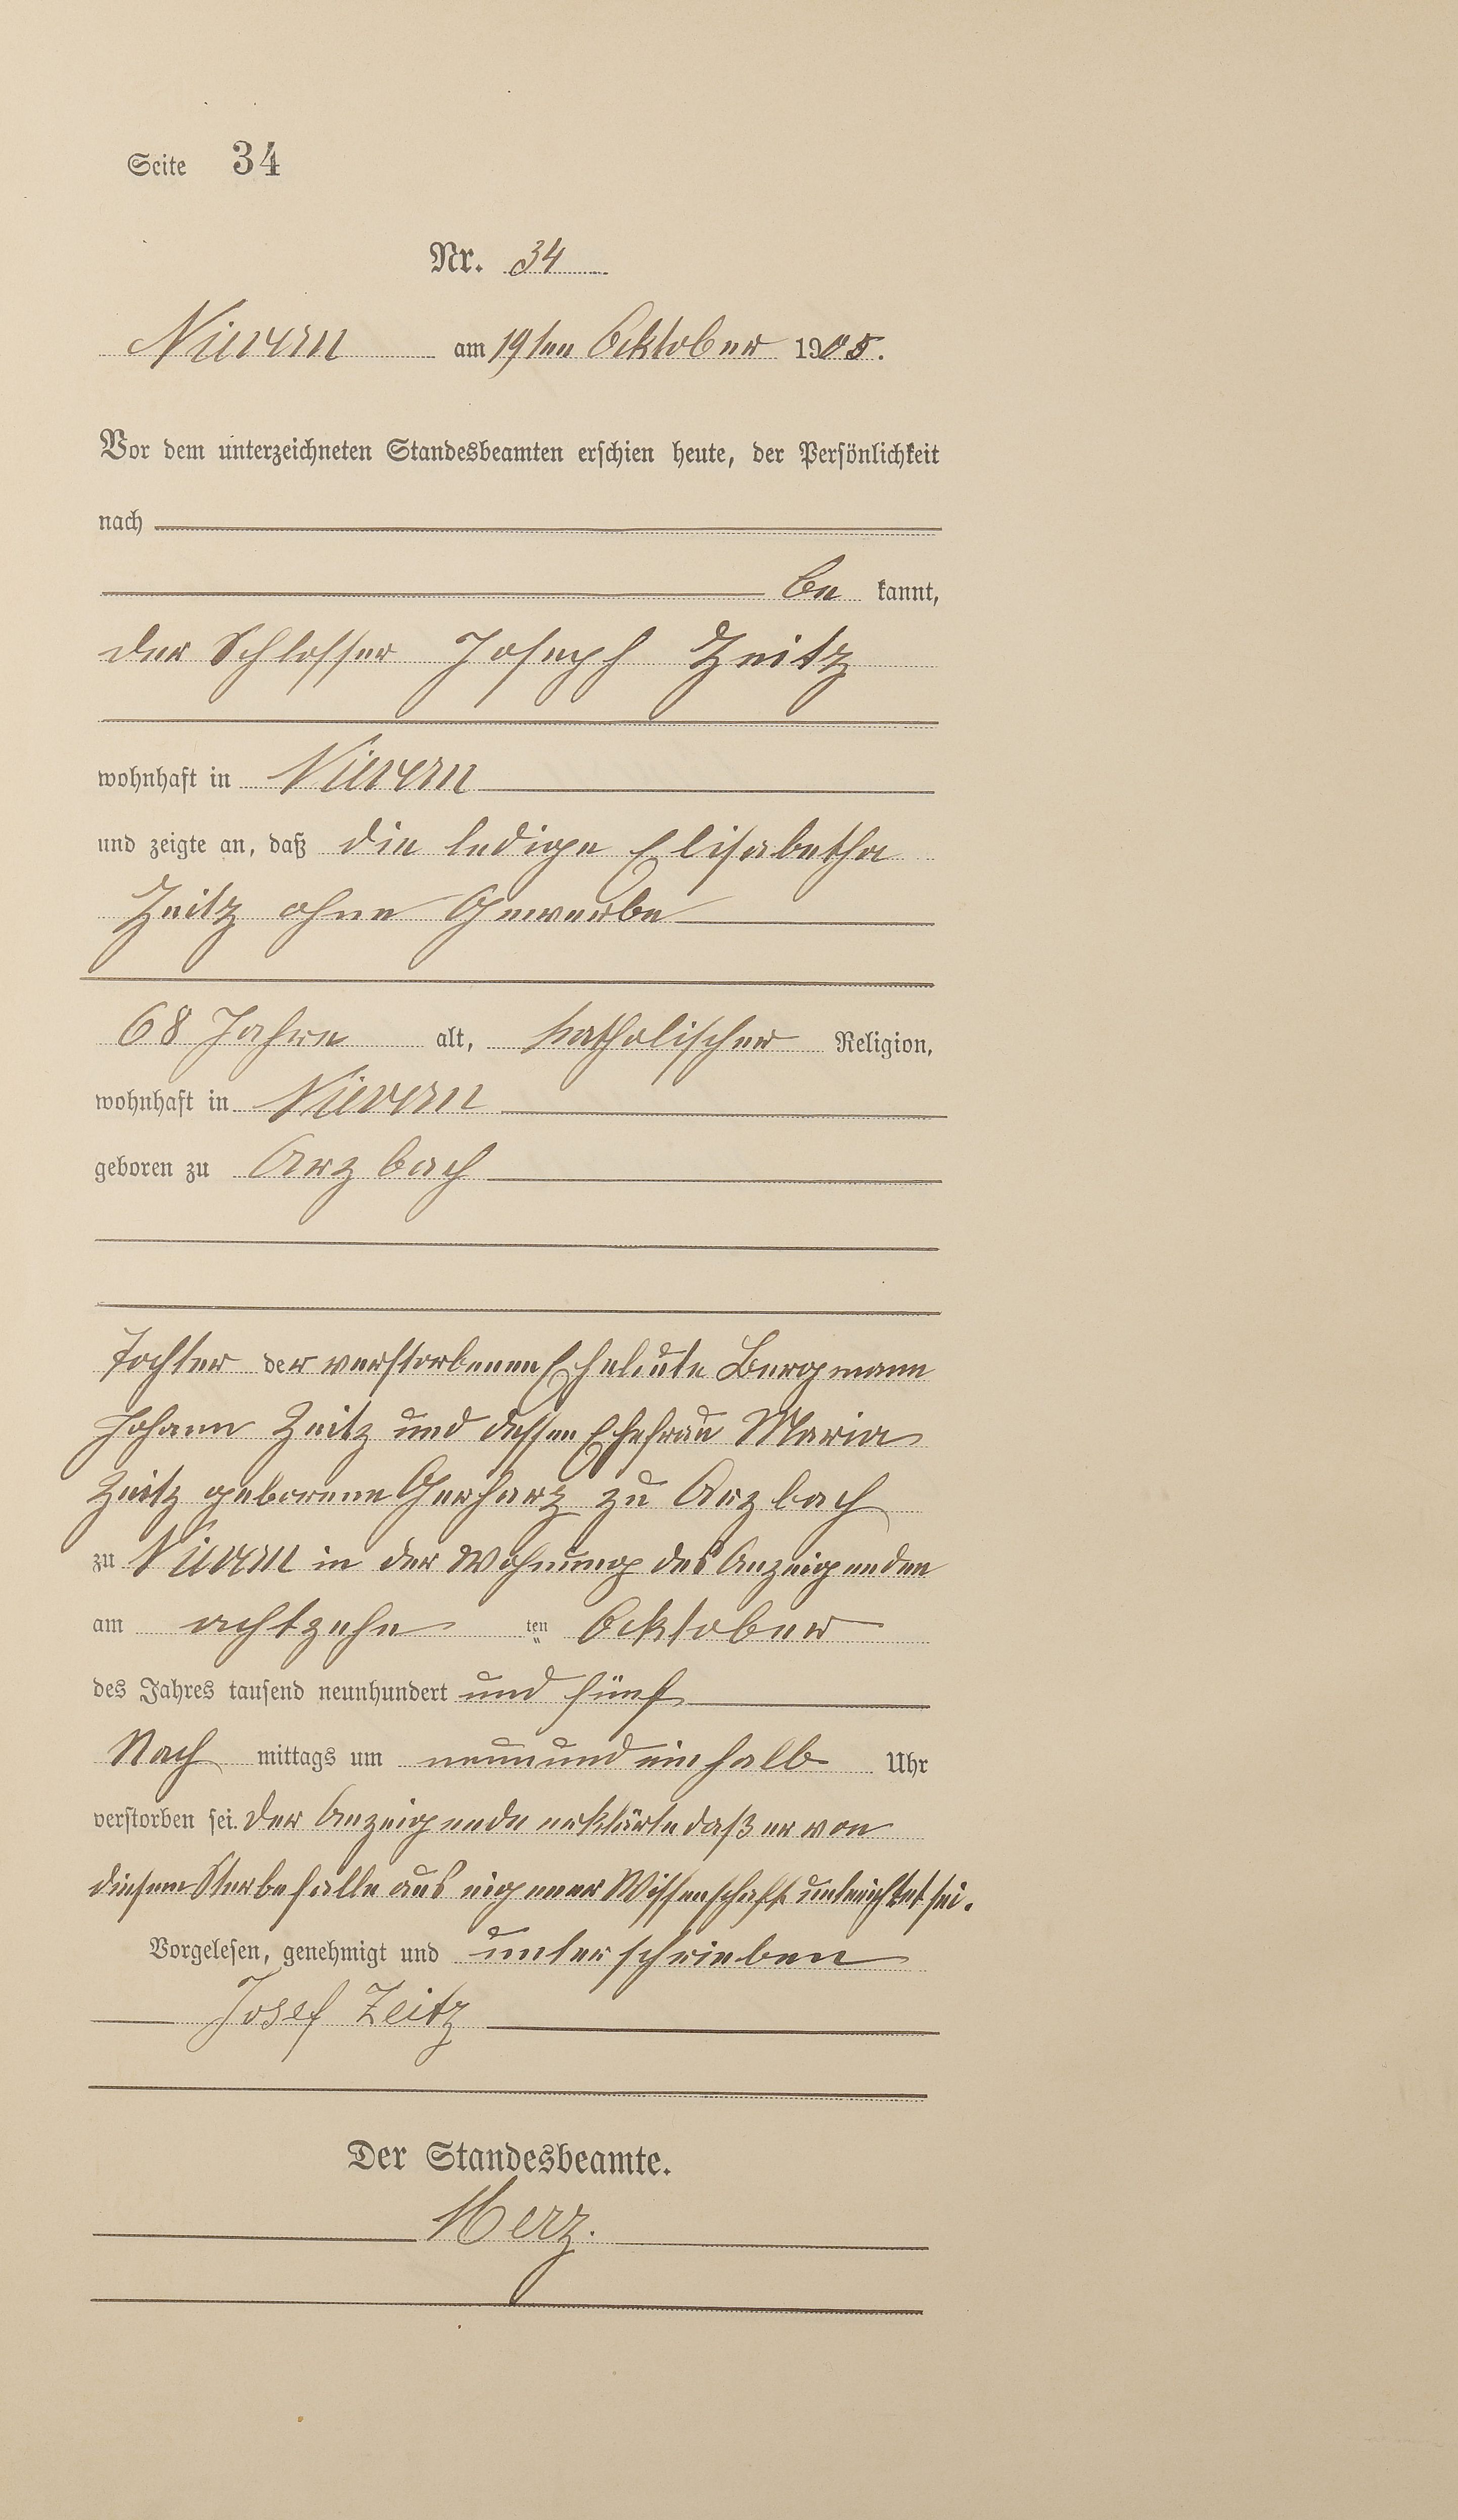 Seite 34
Nr. 34
Nievern am 19ten Ocktober 1905.
Vor dem unterzeichneten Standesbeamten erschien heute, der Persönlichkeit
nach
be kannt,
der Schlosser Joseph Zeitz
wohnhaft in Nievern
und zeigte an, daß die ledige Elisabetha
Zeitz ohne Gewerbe
68 Jahre alt, katholischer Religion,
wohnhaft in Nievern
geboren zu Arzbach
Tochter der verstorbenen Eheleute Bergmann
Johann Zeitz und dessen Ehefrau Maria
Zeitz geborene Gerharz zu Arzbach
zu Nievern in der Wohnung des Anzeigenden
am achtzehn ten Ocktober
des Jahres tausend neunhundert und fünf
Nach mittags um neunundeinhalb Uhr
verstorben sei. Der Anzeigende erklärte daß er von
diesem Sterbefalle aus eigener Wissenschaft unterichtet sei.
Vorgelesen, genehmigt und unterschrieben
Josef Zeitz
Der Standesbeamte.
Merz.